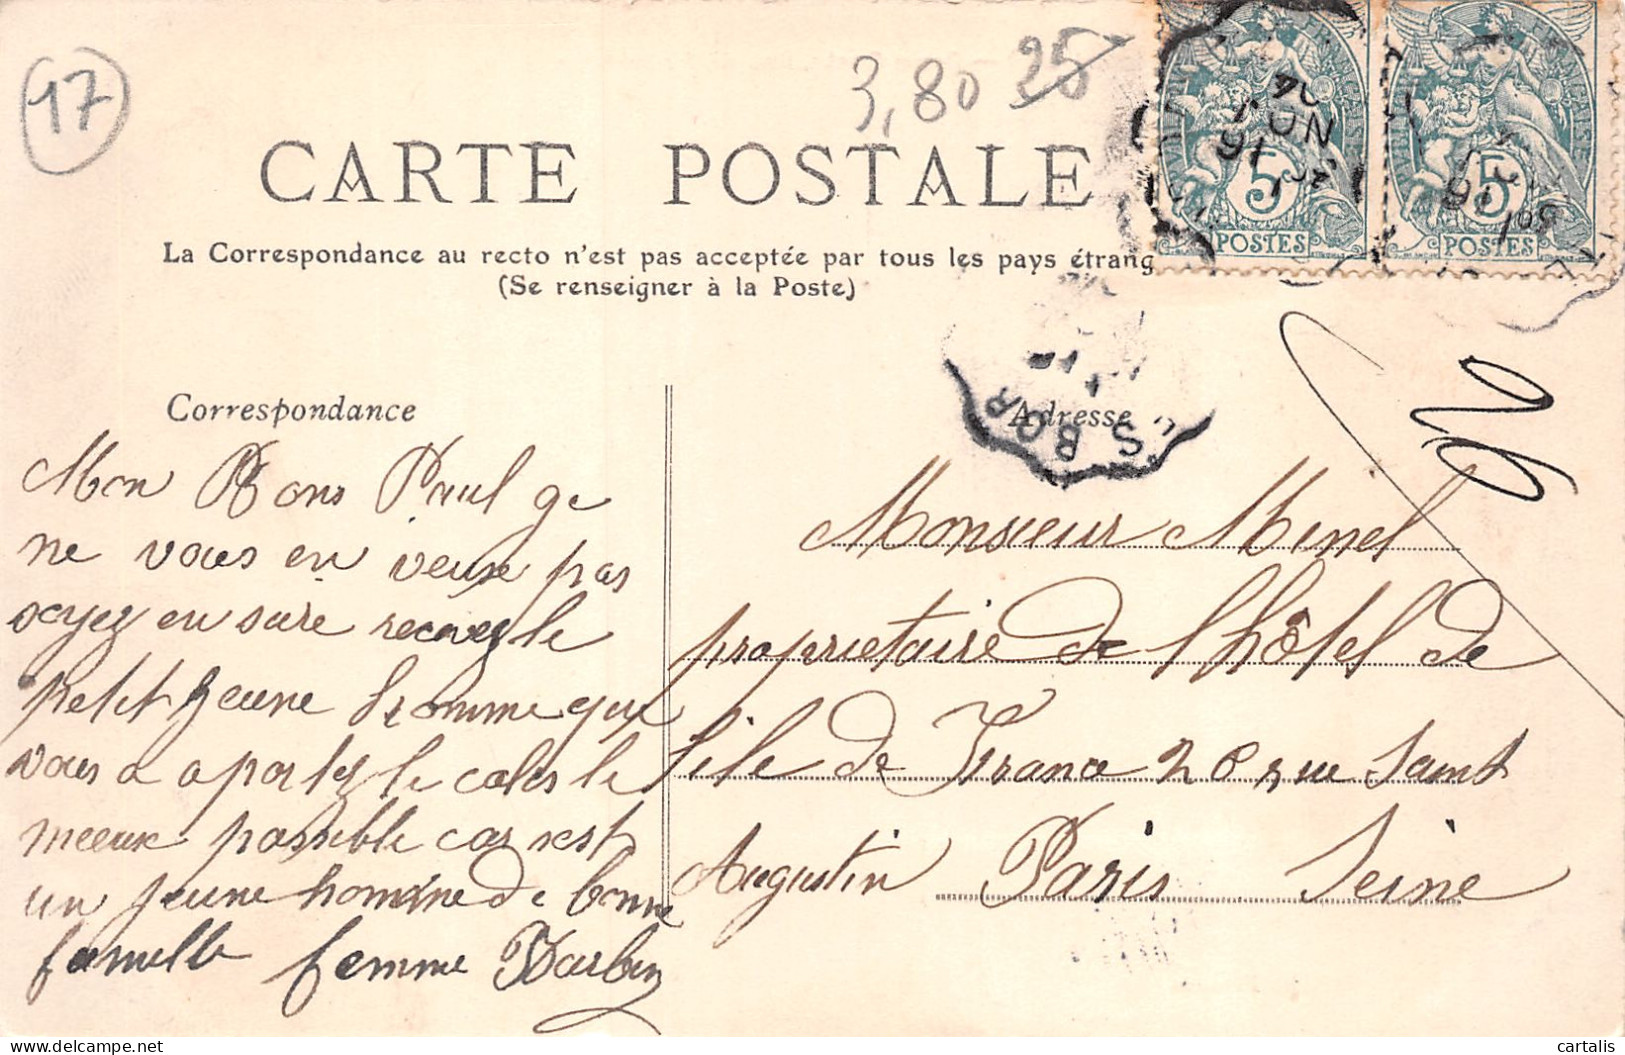 17
3,80 25
CARTE POSTALE
La Correspondance au recto n'est pas acceptée par tous les pays étrang
(Se renseigner à la Poste)
5
POSTES
5
POSTES
S BOR
Correspondance
Mon Bons Paul ge
ne vous en veux pas
soyez en sure recevez le
petit geune homme qui
vous a aportez le coles le
meeux possible car sest
un jeune homme de bonne
famille femme Barbin
Adresse
Monsieur Minel
proprietaire de l'hôtel de
l'ile de France 20 rue Saint
Augustin Paris Seine
cartalis